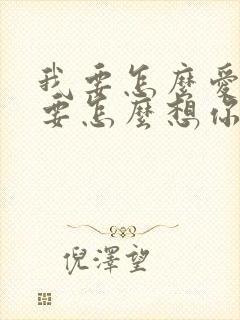 我要怎麼愛
要怎麼想你
倪澤望